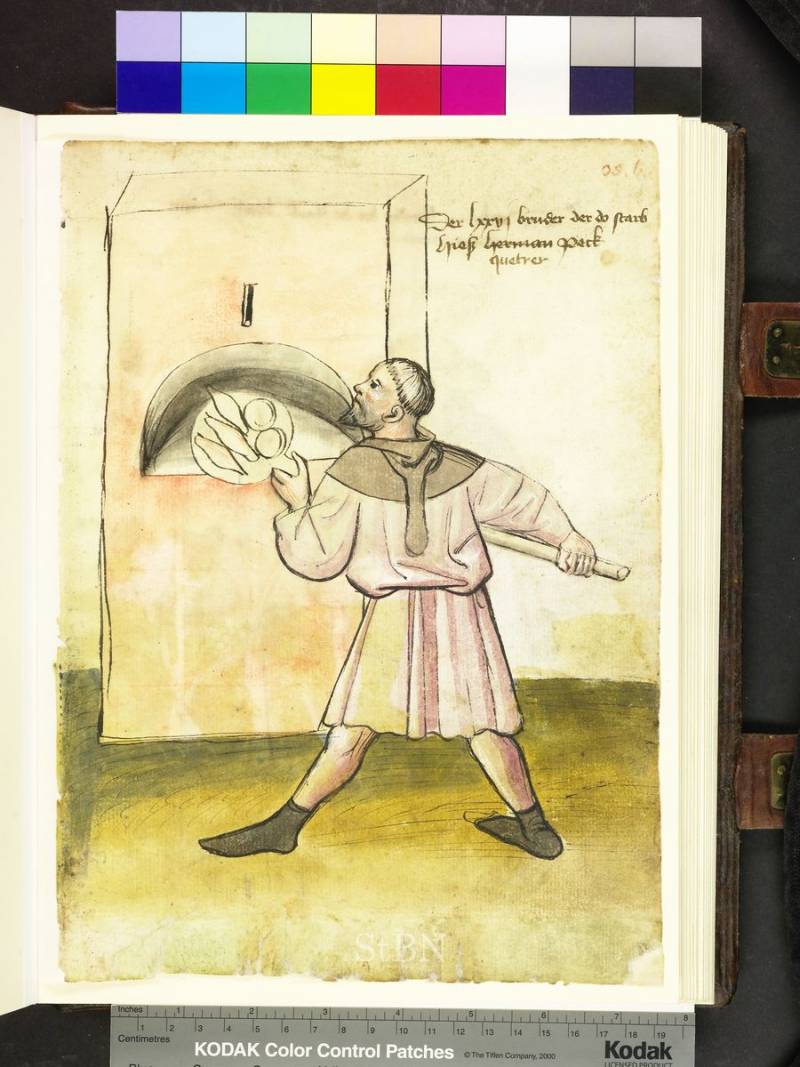 Der lxxvi bruder der do starb
hieß herman Peck
quetrer
StBN
Inches 1 2 3 4 5 6 7 8
Centimetres 1 2 3 4 5 6 7 8 9 10 11 12 13 14 15 16 17 18 19
KODAK Color Control Patches © The Tiffen Company, 2000 Kodak
LICENSED PRODUCT